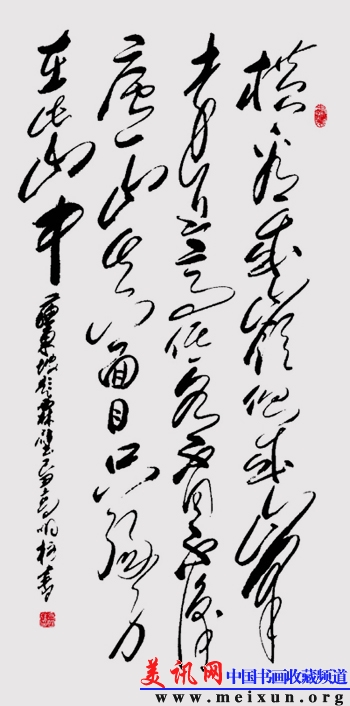 橫看成嶺側成峰
遠近高低各不同不識
廬山真面目只緣身
在此山中
美讯网 中国书画收藏频道
www.meixun.org